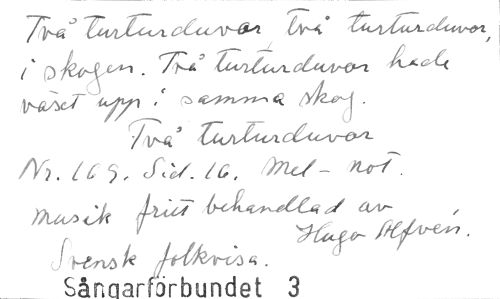 Två turturduvor, två turturduvor,
i skogen. Två turturduvor hade
växt upp i samma skog.
Två turturduvor
Nr. 169. Sid. 16. Mel-not.
musik fritt behandlad av
Hugo Alfvén.
Svensk folkvisa.
Sångarförbundet 3